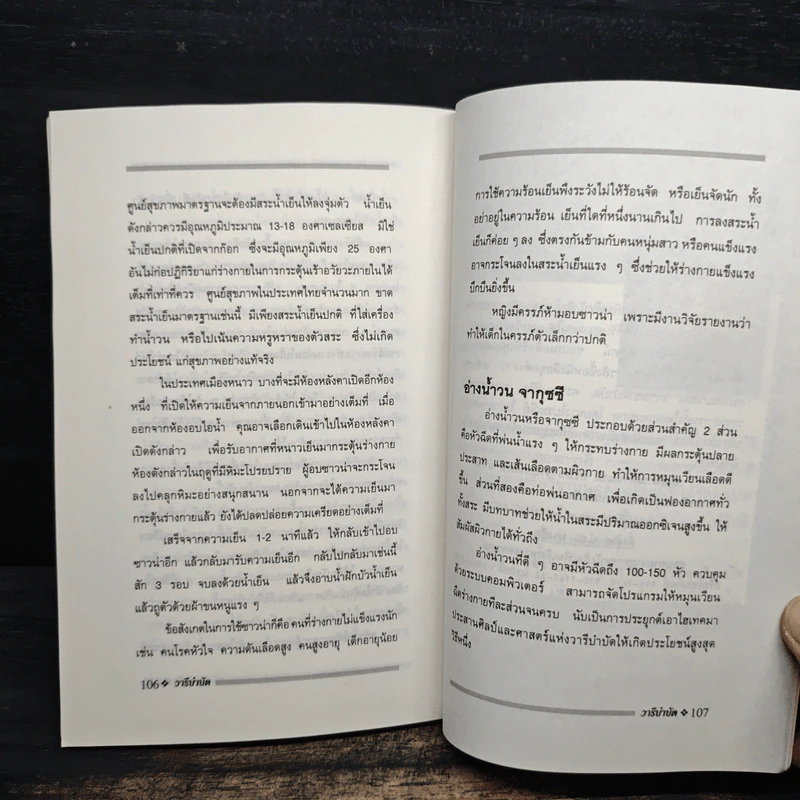 ศูนย์สุขภาพมาตรฐานจะต้องมีสระน้ำเย็นให้ลงจุ่มตัว น้ำเย็น
ดังกล่าวควรมีอุณหภูมิประมาณ 13-18 องศาเซลเซียส มิใช่
น้ำเย็นปกติที่เปิดจากก๊อก ซึ่งจะมีอุณหภูมิเพียง 25 องศา
อันไม่ก่อปฏิกิริยาแก่ร่างกายในการกระตุ้นเร้าอวัยวะภายในได้
เต็มที่เท่าที่ควร ศูนย์สุขภาพในประเทศไทยจำนวนมาก ขาด
สระน้ำเย็นมาตรฐานเช่นนี้ มีเพียงสระน้ำเย็นปกติ ที่ใส่เครื่อง
ทำน้ำวน หรือไปเน้นความหรูหราของตัวสระ ซึ่งไม่เกิด
ประโยชน์ แก่สุขภาพอย่างแท้จริง
ในประเทศเมืองหนาว บางที่จะมีห้องหลังคาเปิดอีกห้อง
หนึ่ง ที่เปิดให้ความเย็นจากภายนอกเข้ามาอย่างเต็มที่ เมื่อ
ออกจากห้องอบไอน้ำ คุณอาจเลือกเดินเข้าไปในห้องหลังคา
เปิดดังกล่าว เพื่อรับอากาศที่หนาวเย็นมากระตุ้นร่างกาย
ห้องดังกล่าวในฤดูที่มีหิมะโปรยปราย ผู้อบซาวน่าจะกระโจน
ลงไปคลุกหิมะอย่างสนุกสนาน นอกจากจะได้ความเย็นมา
กระตุ้นร่างกายแล้ว ยังได้ปลดปล่อยความเครียดอย่างเต็มที่
เสร็จจากความเย็น 1-2 นาทีแล้ว ให้กลับเข้าไปอบ
ซาวน่าอีก แล้วกลับมารับความเย็นอีก กลับไปกลับมาเช่นนี้
สัก 3 รอบ จบลงด้วยน้ำเย็น แล้วจึงอาบน้ำฝักบัวน้ำเย็น
แล้วถูตัวด้วยผ้าขนหนูแรง ๆ
ข้อสังเกตในการใช้ซาวน่าก็คือ คนที่ร่างกายไม่แข็งแรงนัก
เช่น คนโรคหัวใจ ความดันเลือดสูง คนสูงอายุ เด็กอายุน้อย
106 ❖ วารีบำบัด
การใช้ความร้อนเย็นพึงระวังไม่ให้ร้อนจัด หรือเย็นจัดนัก ทั้ง
อย่าอยู่ในความร้อน เย็นที่ใดที่หนึ่งนานเกินไป การลงสระน้ำ
เย็นก็ค่อย ๆ ลง ซึ่งตรงกันข้ามกับคนหนุ่มสาว หรือคนแข็งแรง
อาจกระโจนลงในสระน้ำเย็นแรง ๆ ซึ่งช่วยให้ร่างกายแข็งแรง
บึกบึนยิ่งขึ้น
หญิงมีครรภ์ห้ามอบซาวน่า เพราะมีงานวิจัยรายงานว่า
ทำให้เด็กในครรภ์ตัวเล็กกว่าปกติ
อ่างน้ำวน จากุซซี
อ่างน้ำวนหรือจากุซซี ประกอบด้วยส่วนสำคัญ 2 ส่วน
คือหัวฉีดที่พ่นน้ำแรง ๆ ให้กระทบร่างกาย มีผลกระตุ้นปลาย
ประสาท และเส้นเลือดตามผิวกาย ทำให้การหมุนเวียนเลือดดี
ขึ้น ส่วนที่สองคือท่อพ่นอากาศ เพื่อเกิดเป็นฟองอากาศทั่ว
ทั้งสระ มีบทบาทช่วยให้น้ำในสระมีปริมาณออกซิเจนสูงขึ้น ให้
สัมผัสผิวกายได้ทั่วถึง
อ่างน้ำวนที่ดี ๆ อาจมีหัวฉีดถึง 100-150 หัว ควบคุม
ด้วยระบบคอมพิวเตอร์ สามารถจัดโปรแกรมให้หมุนเวียน
ฉีดร่างกายทีละส่วนจนครบ นับเป็นการประยุกต์เอาไฮเทคมา
ประสานศิลป์และศาสตร์แห่งวารีบำบัดให้เกิดประโยชน์สูงสุด
วิธีหนึ่ง
วารีบำบัด ❖ 107